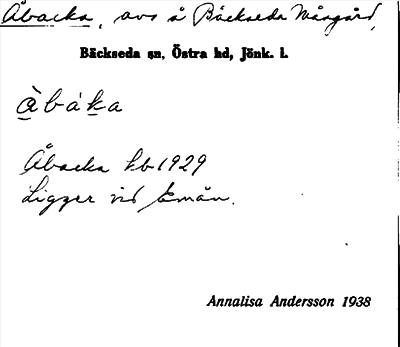 Åbacka, avs å Bäckseda Mårgård,
Bäckseda sn, Östra hd, Jönk. l.
àbáka
Åbacka kb 1929
Ligger vid Emån.
Annalisa Andersson 1938